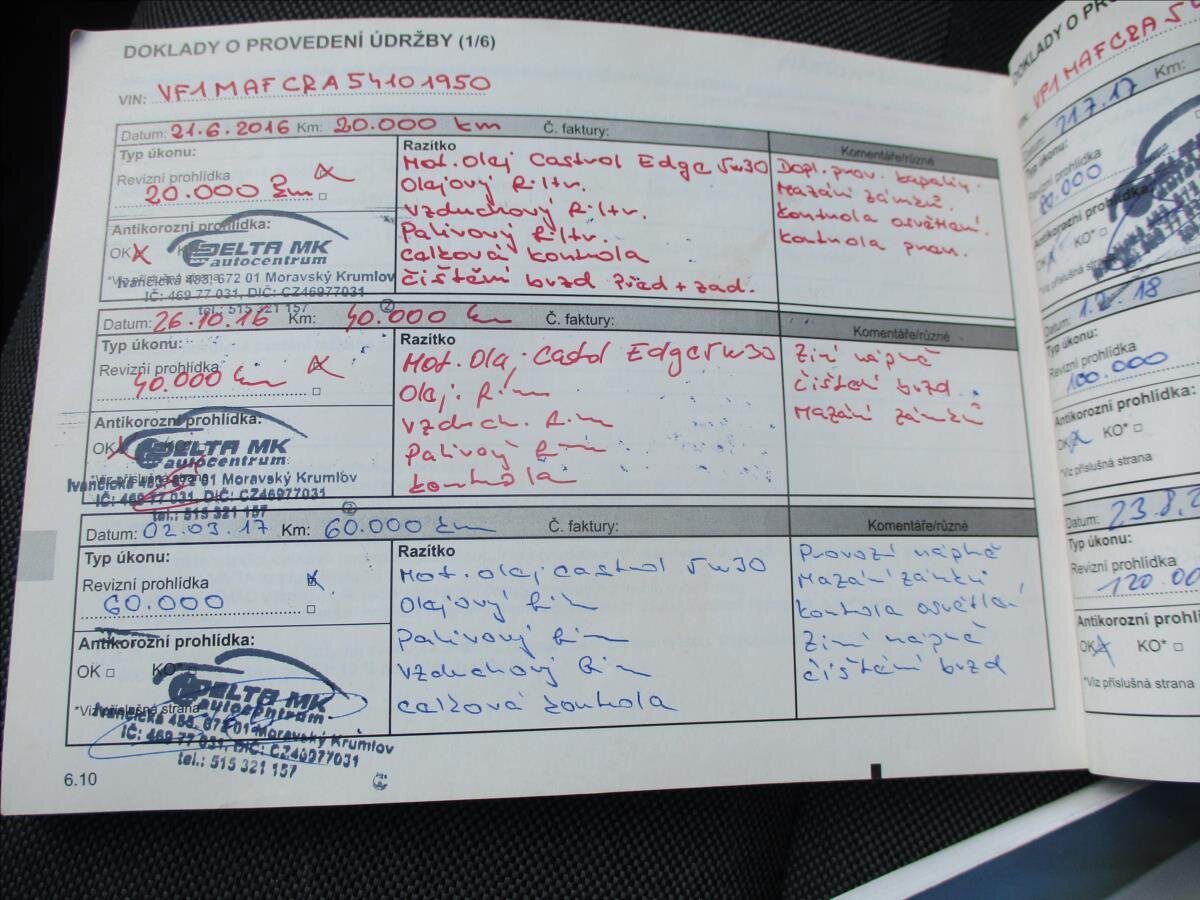 DOKLADY O PROVEDENÍ ÚDRŽBY (1/6)
VIN: VF1MAFCRA54101950
Datum: 21.6.2016 Km: 20.000 km Č. faktury:
Typ úkonu:
Revizní prohlídka
20.000 km
Antikorozní prohlídka:
OK
DELTA MK
autocentrum
*Viz příslušná strana
Ivančická 485, 672 01 Moravský Krumlov
IČ: 469 77 031, DIČ: CZ46977031
tel.: 515 321 157
Razítko
Mot. olej Castrol Edge 5w30
Olejový filtr.
Vzduchový filtr.
Palivový filtr.
Celková kontrola
čištění brzd před + zad.
Komentáře/různé
Dopl. prov. kapalin.
Mazání zámků.
kontrola osvětlání.
kontrola pneu.
Datum: 26.10.16 Km: 40.000 km Č. faktury:
Typ úkonu:
Revizní prohlídka
40.000 km
Antikorozní prohlídka:
OK
DELTA MK
autocentrum
*Viz příslušná strana
Ivančická 485, 672 01 Moravský Krumlov
IČ: 469 77 031, DIČ: CZ46977031
tel.: 515 321 157
Razítko
Mot. Olej Edge 5w30
Olej.
Vzduch.
Palivový
kontrola
Komentáře/různé
Zimí náplně
čištění brzd
Mazání zámků
Datum: 02.03.17 Km: 60.000 km Č. faktury:
Typ úkonu:
Revizní prohlídka
60.000
Antikorozní prohlídka:
OK KO*
DELTA MK
autocentrum
*Viz příslušná strana
Ivančická 485, 672 01 Moravský Krumlov
IČ: 469 77 031, DIČ: CZ46977031
tel.: 515 321 157
Razítko
Mot. olej castrol 5w30
Olejový
Palivový
Vzduchový
celková kontrola
Komentáře/různé
Provozí náplně
Mazání zámků
kontrola osvětlání
Zimí náplně
čištění brzd
6.10
DOKLADY O
VF1MAFCRA5
21.7.17 Km:
Typ úkonu:
Revizní prohlídka
80.000
Antikorozní prohlídka
KO*
*Viz příslušná
Datum: 1.2.18
Typ úkonu:
Revizní prohlídka
100.000
Antikorozní prohlídka:
OK KO*
*Viz příslušná strana
Datum: 23.8.
Typ úkonu:
Revizní prohlídka
120.00
Antikorozní prohlíd
OK KO*
*Viz příslušná strana